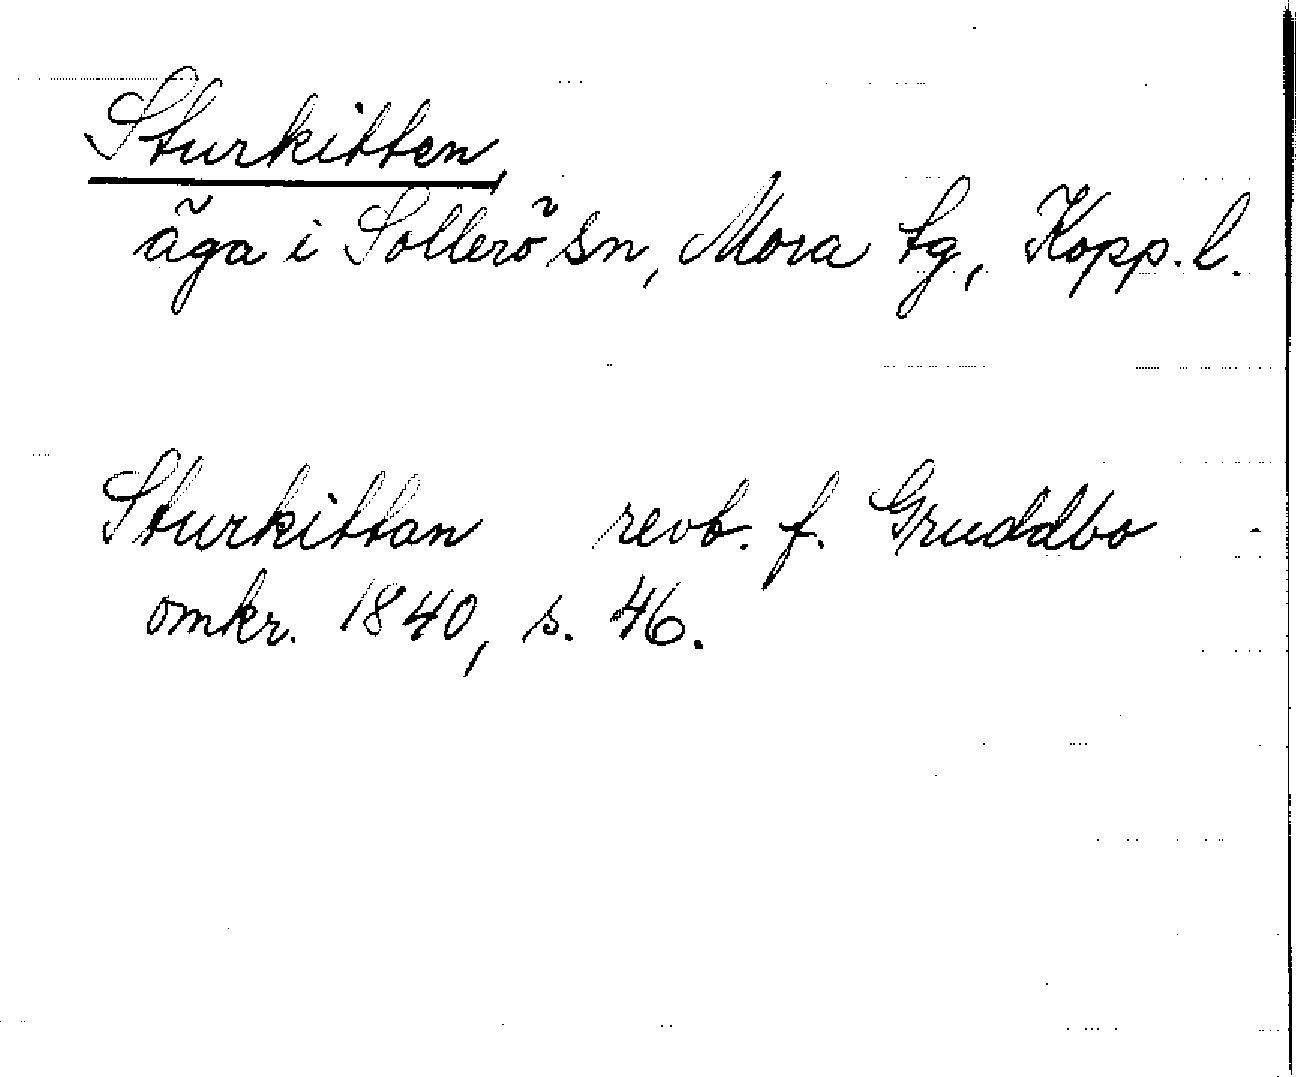 Sturkitten
äga i Sollerö sn, Mora tg, Kopp. l.
Sturkittan revb. f. Gruddbo
omkr. 1840, s. 46.